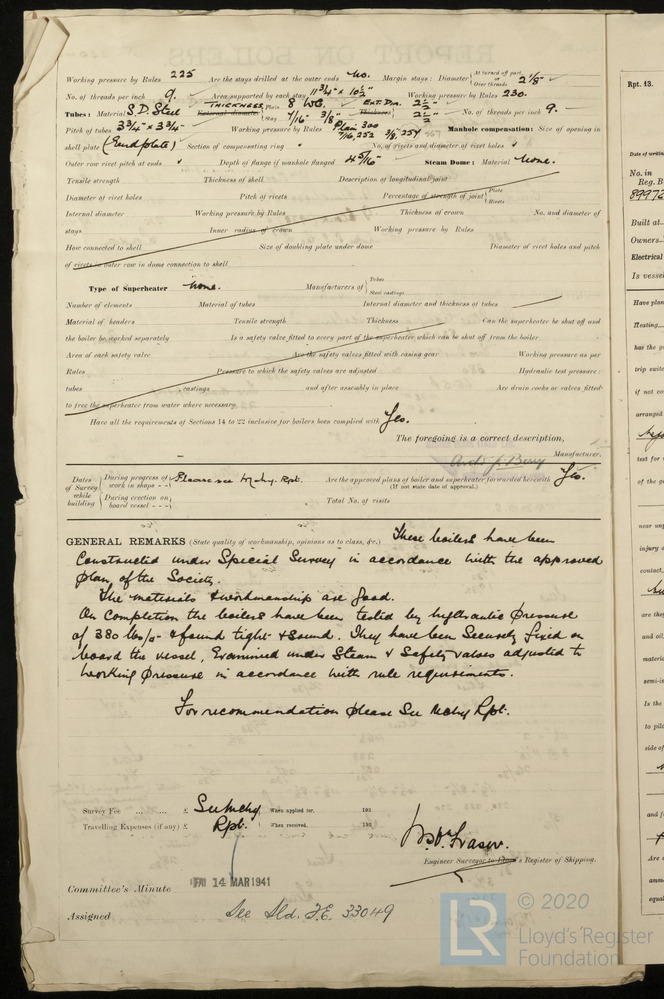 Working pressure by Rules 225 Are the stays drilled at the outer ends No. Margin stays: Diameter { At turned off part or Over threads 2 1/8"
No. of threads per inch 9. Area supported by each stay 11 3/4" x 10 1/2" Working pressure by Rules 230.
Tubes: Material S.D. Steel External diameter THICKNESS { Plain 8 WG. Stay 7/16" 3/8" Thickness EXT. DIA. { 2 1/2" 2 1/2" No. of threads per inch 9.
Pitch of tubes 3 3/4" x 3 3/4" Working pressure by Rules Plain 300 7/16, 252 3/8, 254 Manhole compensation: Size of opening in
shell plate (End plate) Section of compensating ring No. of rivets and diameter of rivet holes
Outer row rivet pitch at ends Depth of flange if manhole flanged 4 5/16" Steam Dome: Material None.
Tensile strength Thickness of shell Description of longitudinal joint
Diameter of rivet holes Pitch of rivets Percentage of strength of joint { Plate Rivets
Internal diameter Working pressure by Rules Thickness of crown No. and diameter of
stays Inner radius of crown Working pressure by Rules
How connected to shell Size of doubling plate under dome Diameter of rivet holes and pitch
of rivets in outer row in dome connection to shell
Type of Superheater None. Manufacturers of { Tubes Steel castings
Number of elements Material of tubes Internal diameter and thickness of tubes
Material of headers Tensile strength Thickness Can the superheater be shut off and
the boiler be worked separately Is a safety valve fitted to every part of the superheater which can be shut off from the boiler
Area of each safety valve Are the safety valves fitted with easing gear Working pressure as per
Rules Pressure to which the safety valves are adjusted Hydraulic test pressure:
tubes castings and after assembly in place Are drain cocks or valves fitted
to free the superheater from water where necessary
Have all the requirements of Sections 14 to 22 inclusive for boilers been complied with Yes.
The foregoing is a correct description,
Manufacturer.
Dates of Survey while building { During progress of work in shops - - Please see Mchy. Rpt. Are the approved plans of boiler and superheater forwarded herewith Yes.
(If not state date of approval.)
During erection on board vessel - - - Total No. of visits
GENERAL REMARKS (State quality of workmanship, opinions as to class, &c.) These boilers have been
Constructed under Special Survey in accordance with the approved
plan of the Society.
The materials & workmanship are good.
On Completion the boilers have been tested by hydraulic pressure
of 380 lbs/□" & found tight & sound. They have been Securely fixed on
board the vessel, Examined under Steam & Safety valves adjusted to
working pressure in accordance with rule requirements.
For recommendation please See Mchy Rpt.
Survey Fee ... ... £ See Mchy When applied for, 193
Travelling Expenses (if any) £ Rpt. When received, 193
Fraser.
Engineer Surveyor to Lloyd's Register of Shipping.
Committee's Minute FRI 14 MAR 1941
Assigned See Sld. F.E. 33049
Rpt. 13.
Date of writin
No. in
Reg. B
89972
Built at
Owners
Electrical
Is vessel
Have plan
Heating
has the g
trip switc
if not co
arranged
test for
of the g
near un
injury o
contact,
are they
and oil,
materia
semi-in
Is the
to pilo
side of
and f
Are
amm
equal
© 2020
LR
Lloyd's Register
Foundation